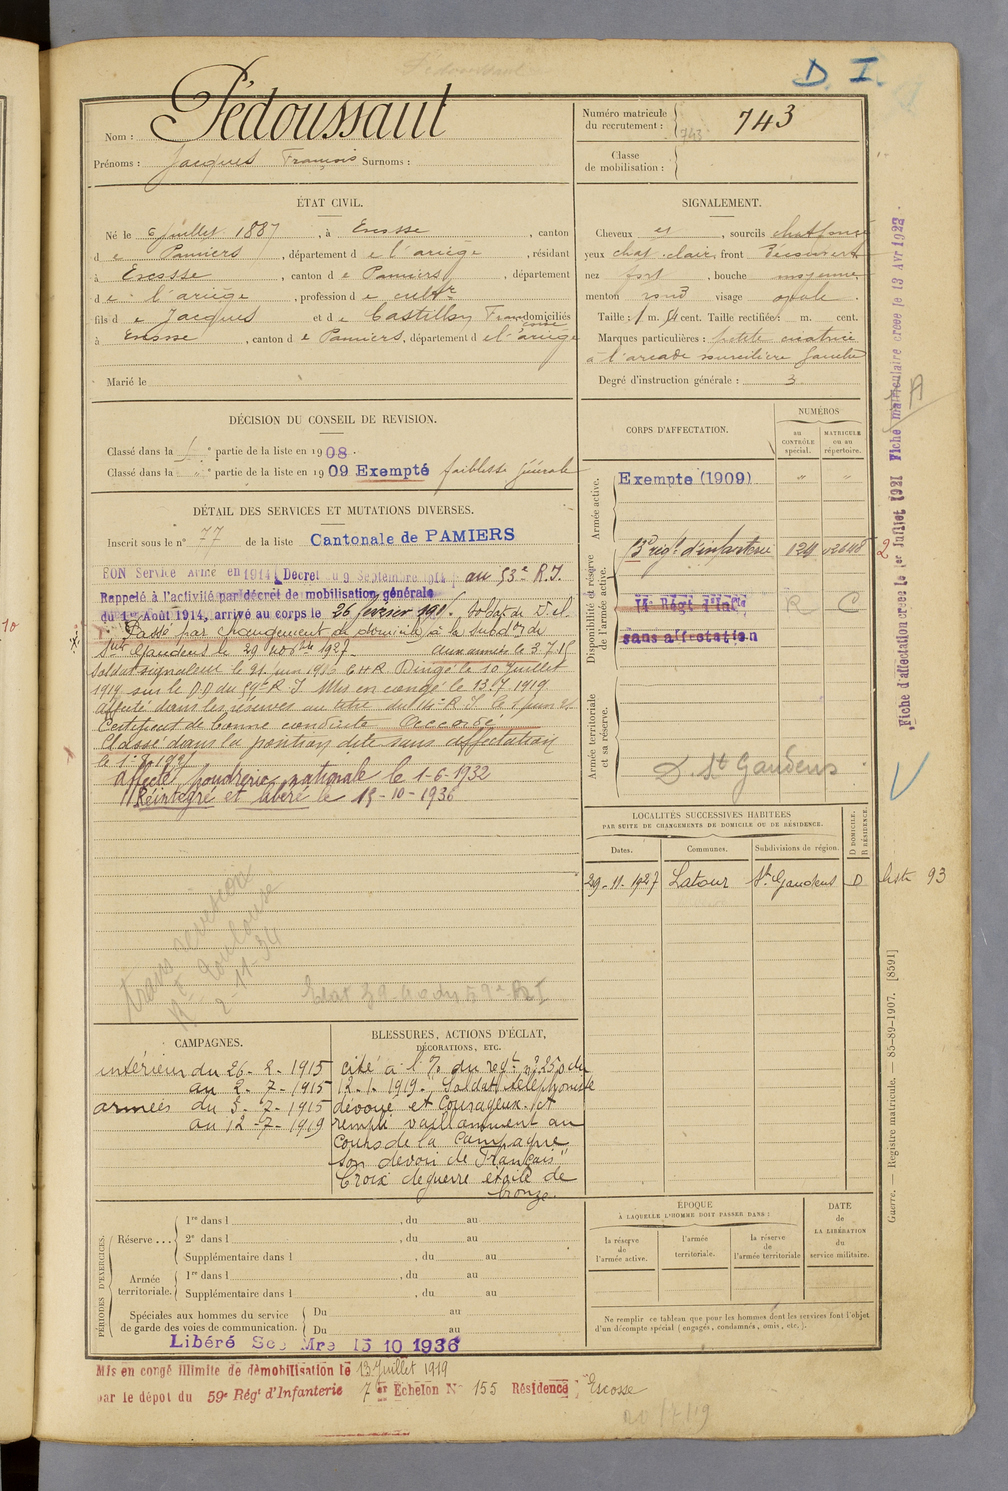 D. I.
Nom : Pédoussaut
Prénoms : Jacques François Surnoms :
Numéro matricule du recrutement : 743 743
Classe de mobilisation :
ÉTAT CIVIL.
Né le 6 juillet 1887, à Escosse, canton
de Pamiers, département de l'ariège, résidant
à Escosse, canton de Pamiers, département
de l'ariège, profession de cultr
fils de Jacques et de Castilla domiciliés
à Escosse, canton de Pamiers, département de l'ariège
Marié le
SIGNALEMENT.
Cheveux et, sourcils
yeux chat. clair, front découvert
nez fort, bouche moyenne
menton rond visage ovale.
Taille : 1 m. cent. Taille rectifiée : m. cent.
Marques particulières : petite cicatrice
à l'arcade sourcilière gauche
Degré d'instruction générale : 3
DÉCISION DU CONSEIL DE REVISION.
Classé dans la partie de la liste en 1908.
Classé dans la partie de la liste en 1909 Exempté faiblesse générale
DÉTAIL DES SERVICES ET MUTATIONS DIVERSES.
Inscrit sous le n° 77 de la liste Cantonale de PAMIERS
BON Service Armé en 1914 (Décret du 9 Septembre 1914) au 53e R.I.
Rappelé à l'activité par décret de mobilisation générale
du 1er Août 1914, arrivé au corps le 26 février 1915. Soldat de 2e cl.
Passé par changement de domicile à la subdon de
St Gaudens le 29 novbre 1927. aux armées le 3.7.15
Soldat signaleur le 21 juin 1916 Dirigé le 10 Juillet
1919 sur le D.D du 59e R.I. Mis en congé le 13.7.1919.
affecté dans les réserves au titre du 14e R.I.
Certificat de bonne conduite Accordé
Classé dans la position dite sans affectation
le
affecté poudrerie nationale le 1-6-1932
Réintégré et libéré le 15-10-1936
Toulouse
2-11-34
59e R I
CORPS D'AFFECTATION.
NUMÉROS
au CONTRÔLE spécial.
MATRICULE ou au répertoire.
Armée active.
Exempte (1909) " "
Disponibilité et réserve de l'armée active.
régt d'infanterie 124
14e Régt d'Infie R C
sans affectation
Armée territoriale et sa réserve.
D. St Gaudens
LOCALITÉS SUCCESSIVES HABITÉES
PAR SUITE DE CHANGEMENTS DE DOMICILE OU DE RÉSIDENCE.
Dates. Communes. Subdivisions de région. D DOMICILE. R RÉSIDENCE.
29-11-1927 Latour St Gaudens D
93
Fiche d'affectation créée le 1er Juillet 1921 Fiche matriculaire créée le 13 Avr 1922
Guerre. — Registre matricule. — 85-89-1907. [8591]
CAMPAGNES.
intérieur du 26-2-1915
au 2-7-1915
armées du 3-7-1915
au 12-7-1919
BLESSURES, ACTIONS D'ÉCLAT,
DÉCORATIONS, ETC.
cité à l'O. du régt n° 225 du
12-1-1919. "Soldat téléphoniste
dévoué et courageux. A
rempli vaillamment au
cours de la Campagne
son devoir de Français"
Croix de guerre étoile de
bronze.
PÉRIODES D'EXERCICES.
Réserve ... 1re dans l , du au
2e dans l , du au
Supplémentaire dans l , du au
Armée territoriale. 1re dans l , du au
Supplémentaire dans l , du au
Spéciales aux hommes du service de garde des voies de communication. Du au
Du au
ÉPOQUE
À LAQUELLE L'HOMME DOIT PASSER DANS :
la réserve de l'armée active.
l'armée territoriale.
la réserve de l'armée territoriale
DATE de LA LIBÉRATION du service militaire.
Ne remplir ce tableau que pour les hommes dont les services font l'objet
d'un décompte spécial (engagés, condamnés, omis, etc.).
Libéré Sce Mre 15 10 1936
Mis en congé illimité de démobilisation le 13 Juillet 1919
par le dépôt du 59e Régt d'Infanterie 7e Echelon N° 155 Résidence : Escosse